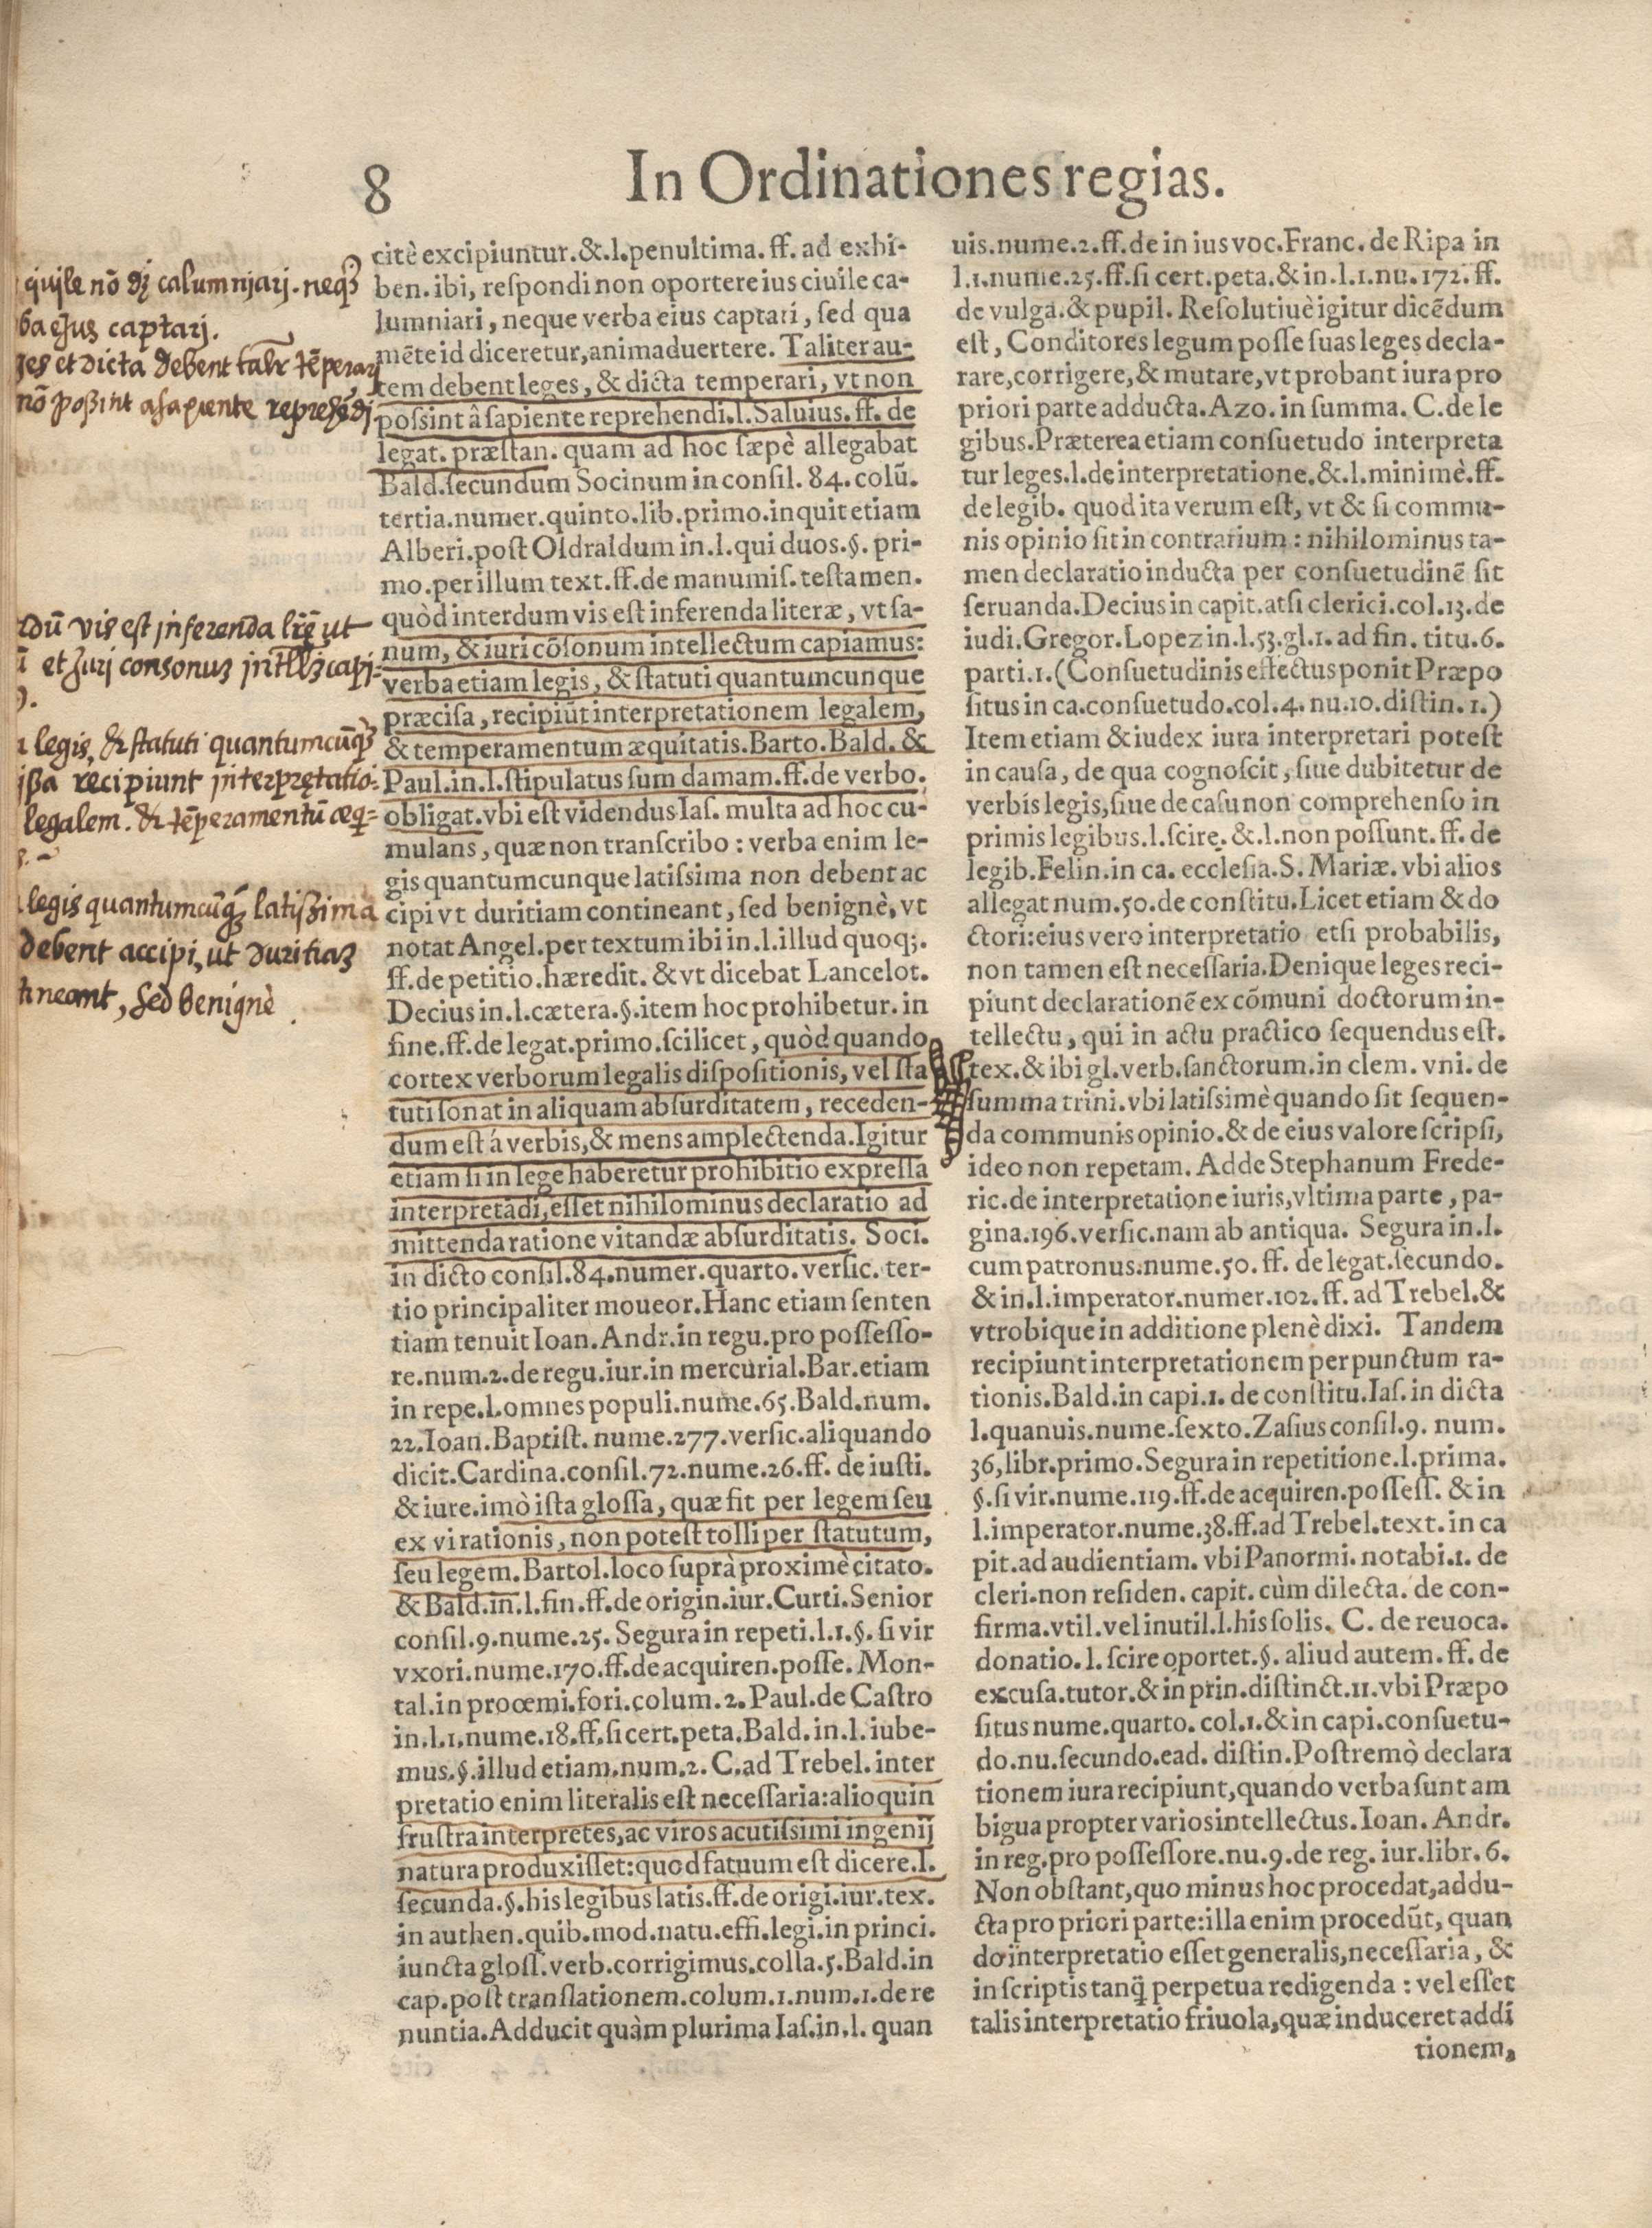 8
In Ordinationes regias.
citè excipiuntur.&.l.penultima.ff. ad exhi-
ben. ibi, respondi non oportere ius ciuile ca-
lumniari, neque verba eius captari, sed qua
mēte id diceretur, animaduertere. Taliter au-
tem debent leges, & dicta temperari, vt non
possint â sapiente reprehendi.l.Saluius.ff. de
legat. præstan. quam ad hoc sæpè allegabat
Bald.secundum Socinum in consil. 84. colū.
tertia.numer.quinto.lib.primo.inquit etiam
Alberi.post Oldraldum in.l.qui duos.§. pri-
mo.per illum text.ff.de manumis. testamen.
quòd interdum vis est inferenda literæ, vt sa-
num, & iuri cōsonum intellectum capiamus:
verba etiam legis, & statuti quantumcunque
præcisa, recipiūt interpretationem legalem,
& temperamentum æquitatis.Barto.Bald. &
Paul.in.l.stipulatus sum damam.ff.de verbo.
obligat.vbi est videndus Ias. multa ad hoc cu-
mulans, quæ non transcribo : verba enim le-
gis quantumcunque latissima non debent ac
cipi vt duritiam contineant, sed benignè, vt
notat Angel.per textum ibi in.l.illud quoq;.
ff.de petitio.hæredit. & vt dicebat Lancelot.
Decius in.l.cætera.§.item hoc prohibetur. in
fine.ff.de legat.primo.scilicet, quòd quando
cortex verborum legalis dispositionis, vel sta
tuti sonat in aliquam absurditatem, receden-
dum est á verbis, & mens amplectenda.Igitur
etiam si in lege haberetur prohibitio expressa
interpretādi, esset nihilominus declaratio ad
mittenda ratione vitandæ absurditatis. Soci.
in dicto consil.84.numer.quarto. versic. ter-
tio principaliter moueor.Hanc etiam senten
tiam tenuit Ioan. Andr. in regu. pro possesso-
re.num.2.de regu.iur.in mercurial.Bar.etiam
in repe.l.omnes populi.nume.65.Bald.num.
22.Ioan.Baptist. nume.277.versic.aliquando
dicit.Cardina.consil.72.nume.26.ff. de iusti.
& iure.imò ista glossa, quæ fit per legem seu
ex vi rationis, non potest tolli per statutum,
seu legem. Bartol.loco suprà proximè citato.
& Bald.in.l.fin.ff.de origin.iur.Curti.Senior
consil.9.nume.25. Segura in repeti.l.1.§. si vir
vxori.nume.170.ff.de acquiren.posse. Mon-
tal.in proœmi.fori.colum.2. Paul.de Castro
in.l.1.nume.18.ff.si cert.peta.Bald. in.l. iube-
mus.§.illud etiam.num.2. C.ad Trebel. inter
pretatio enim literalis est necessaria:alioquin
frustra interpretes, ac viros acutissimi ingenij
natura produxisset:quod fatuum est dicere.l.
secunda.§.his legibus latis.ff.de origi.iur.tex.
in authen.quib.mod.natu.effi.legi.in princi.
iuncta gloss.verb.corrigimus.colla.5.Bald.in
cap.post translationem.colum.1.num.1.de re
nuntia.Adducit quàm plurima Ias.in.l. quan
uis.nume.2.ff.de in ius voc.Franc. de Ripa in
l.1.nume.25.ff.si cert.peta.& in.l.1.nu.172.ff.
de vulga.& pupil. Resolutiuè igitur dicēdum
est, Conditores legum posse suas leges decla-
rare, corrigere, & mutare, vt probant iura pro
priori parte adducta. Azo. in summa. C.de le
gibus.Præterea etiam consuetudo interpreta
tur leges.l.de interpretatione.&.l.minimè.ff.
de legib. quod ita verum est, vt & si commu-
nis opinio sit in contrarium : nihilominus ta-
men declaratio inducta per consuetudinē sit
seruanda.Decius in capit.at si clerici.col.13.de
iudi.Gregor.Lopez in.l.53.gl.1. ad fin. titu.6.
parti.1.(Consuetudinis effectus ponit Præpo
situs in ca.consuetudo.col.4. nu.10.distin. 1.)
Item etiam & iudex iura interpretari potest
in causa, de qua cognoscit, siue dubitetur de
verbis legis, siue de casu non comprehenso in
primis legibus.l.scire.&.l.non possunt. ff. de
legib.Felin.in ca. ecclesia.S. Mariæ. vbi alios
allegat num.50.de constitu.Licet etiam & do
ctori:eius vero interpretatio etsi probabilis,
non tamen est necessaria.Denique leges reci-
piunt declarationē ex cōmuni doctorum in-
tellectu, qui in actu practico sequendus est.
tex.& ibi gl.verb.sanctorum.in clem. vni. de
summa trini. vbi latissimè quando sit sequen-
da communis opinio.& de eius valore scripsi,
ideo non repetam. Adde Stephanum Frede-
ric.de interpretatione iuris, vltima parte, pa-
gina.196.versic.nam ab antiqua. Segura in.l.
cum patronus.nume.50.ff. de legat.secundo.
& in.l.imperator.numer.102.ff. ad Trebel.&
vtrobique in additione plenè dixi. Tandem
recipiunt interpretationem per punctum ra-
tionis.Bald.in capi.1. de constitu.Ias. in dicta
l.quanuis.nume.sexto.Zasius consil.9. num.
36, libr.primo.Segura in repetitione.l.prima.
§.si vir.nume.119.ff.de acquiren.possess. & in
l.imperator.nume.38.ff.ad Trebel.text. in ca
pit.ad audientiam. vbi Panormi. notabi.1. de
cleri.non residen. capit. cùm dilecta. de con-
firma.vtil.vel inutil.l.his solis. C. de reuoca.
donatio.l. scire oportet.§. aliud autem. ff. de
excusa.tutor.& in prin.distinct.11.vbi Præpo
situs nume.quarto. col.1.& in capi.consuetu-
do.nu.secundo.ead. distin.Postremò declara
tionem iura recipiunt, quando verba sunt am
bigua propter varios intellectus. Ioan. Andr.
in reg.pro possessore.nu.9.de reg. iur.libr. 6.
Non obstant, quo minus hoc procedat, addu-
cta pro priori parte:illa enim procedūt, quan
do interpretatio esset generalis, necessaria, &
in scriptis tanq̃ perpetua redigenda : vel esset
talis interpretatio friuola, quæ induceret addi
tionem,
captarj.
et dicta debent
nō poßint a sapiente
vis est inferenda ut
et Jurj
legis, & statuti
recipiunt
legalem. &
legis latißima
debent accipi, ut duritiaȝ
, sed benignè